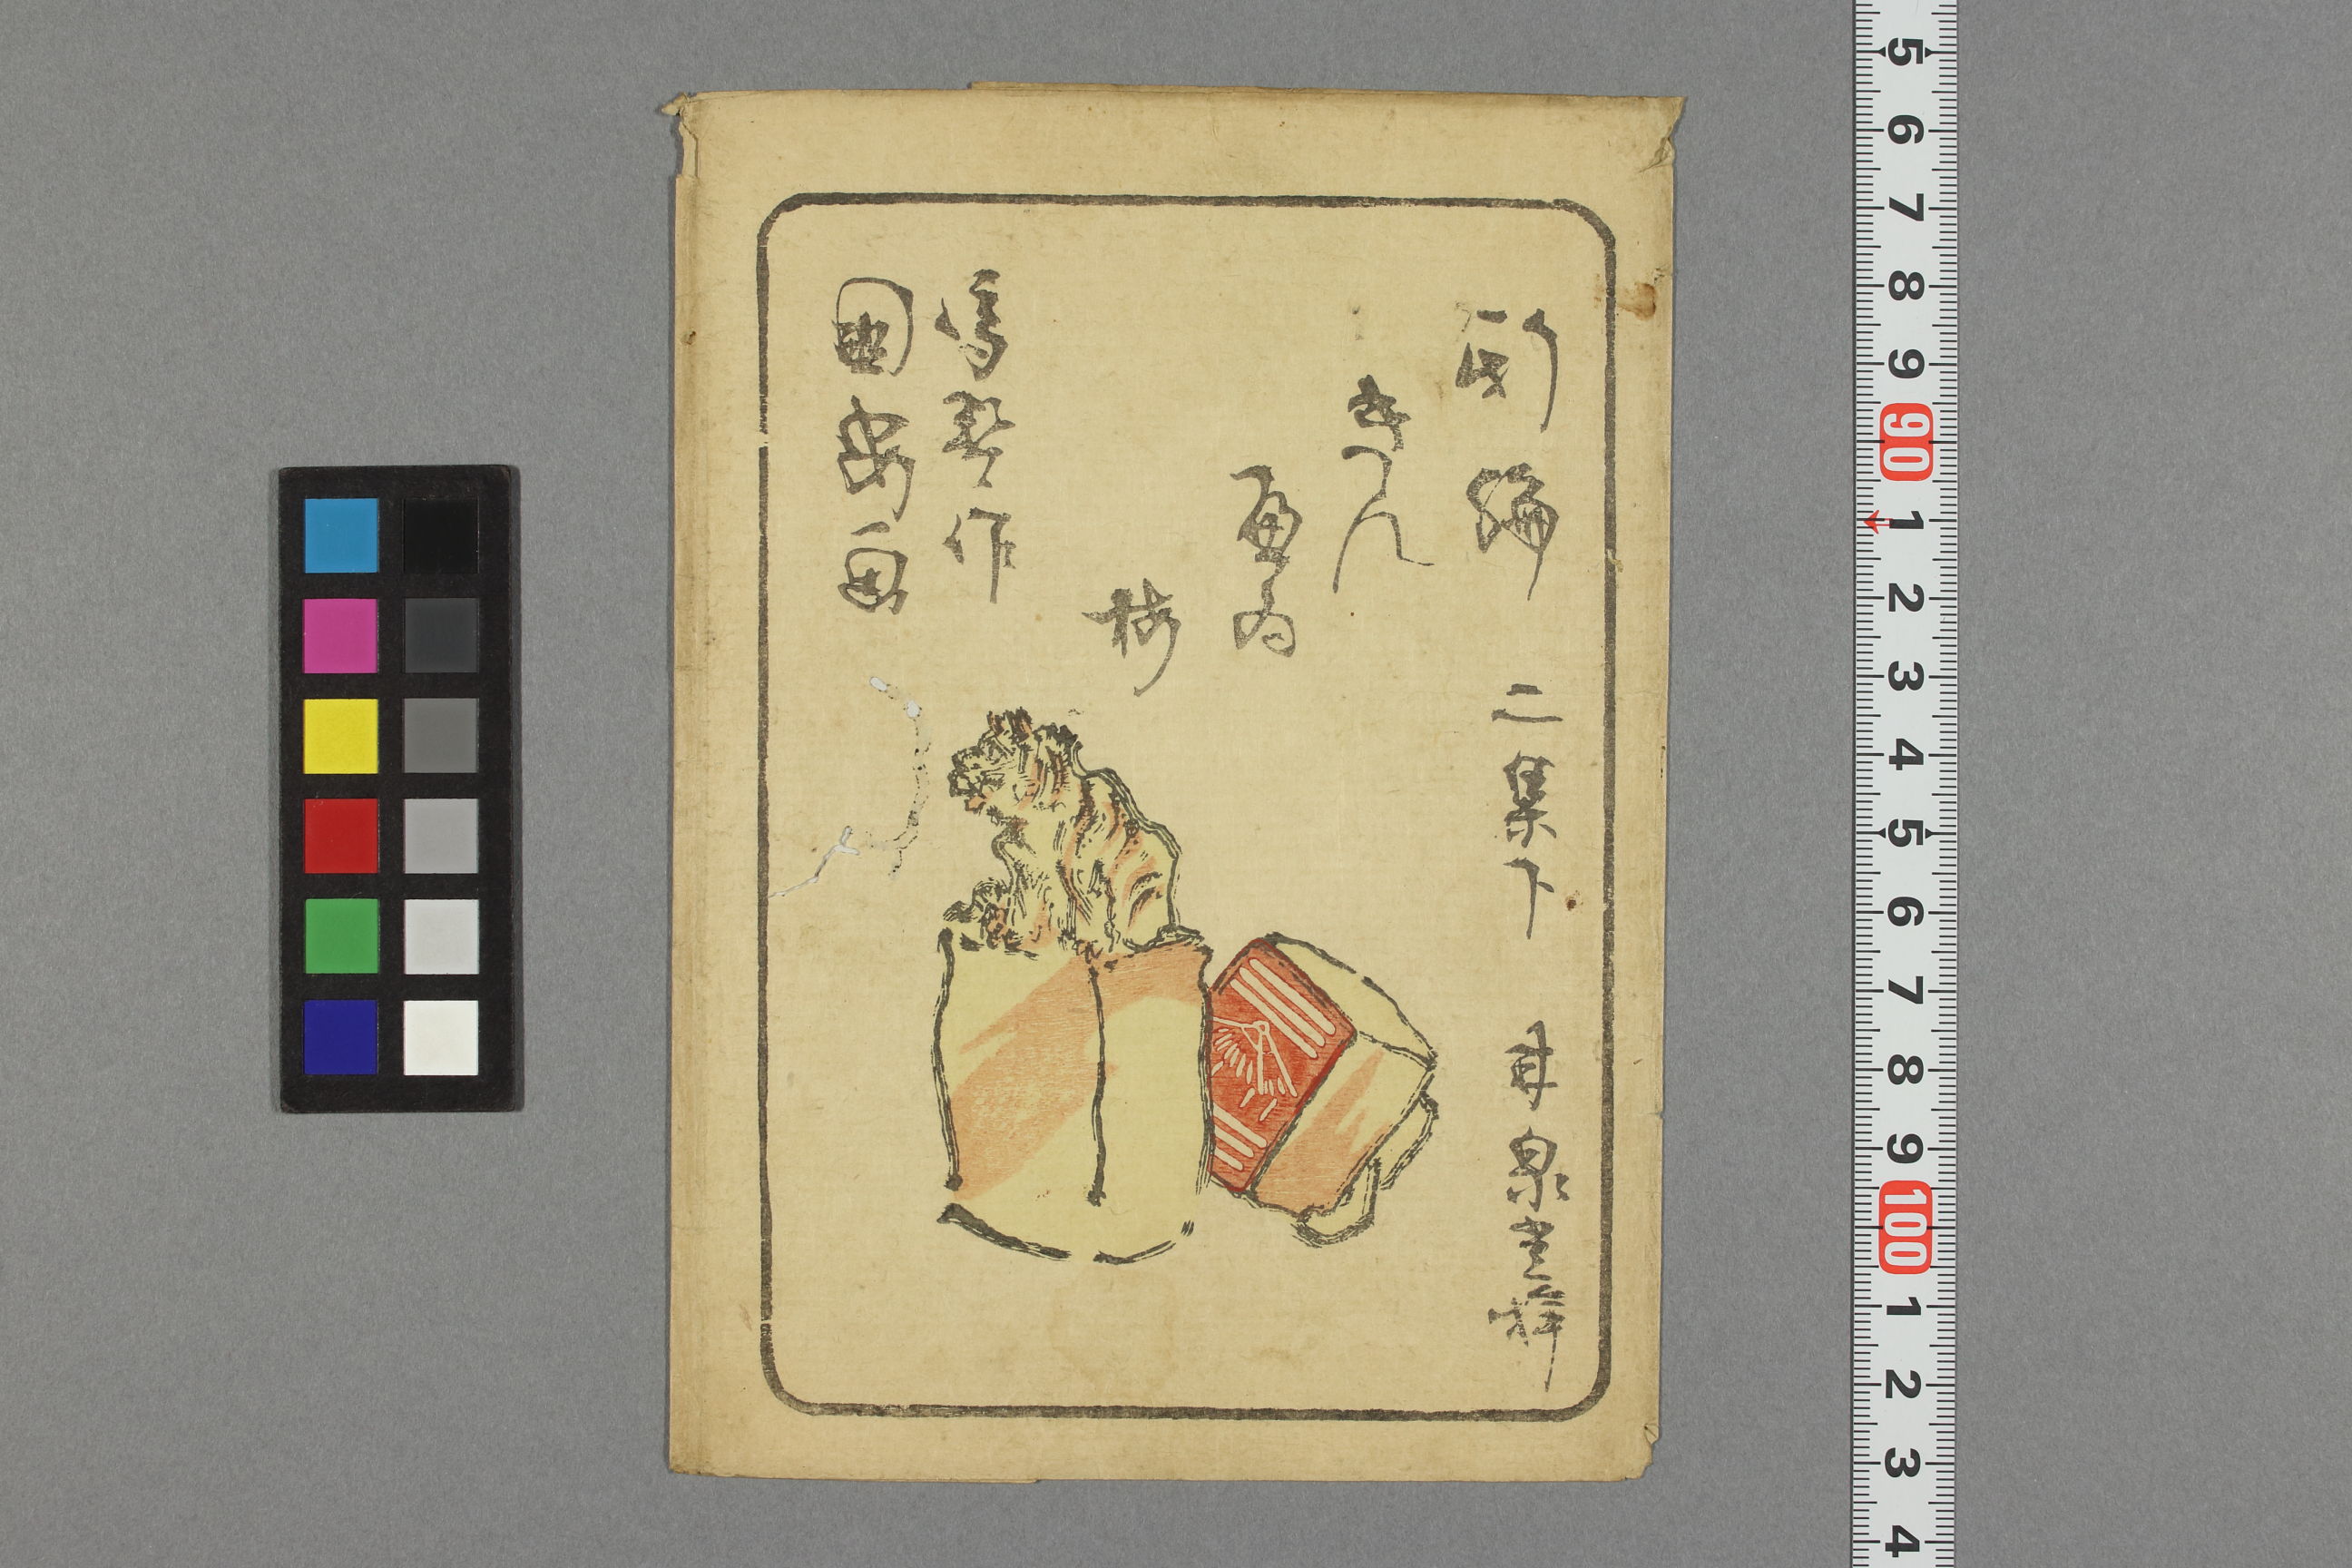 新編
きん
画為
梅
二集下
甘泉堂梓
馬琴作
国安画
5
6
7
8
9
90
1
2
3
4
5
6
7
8
9
100
1
2
3
4